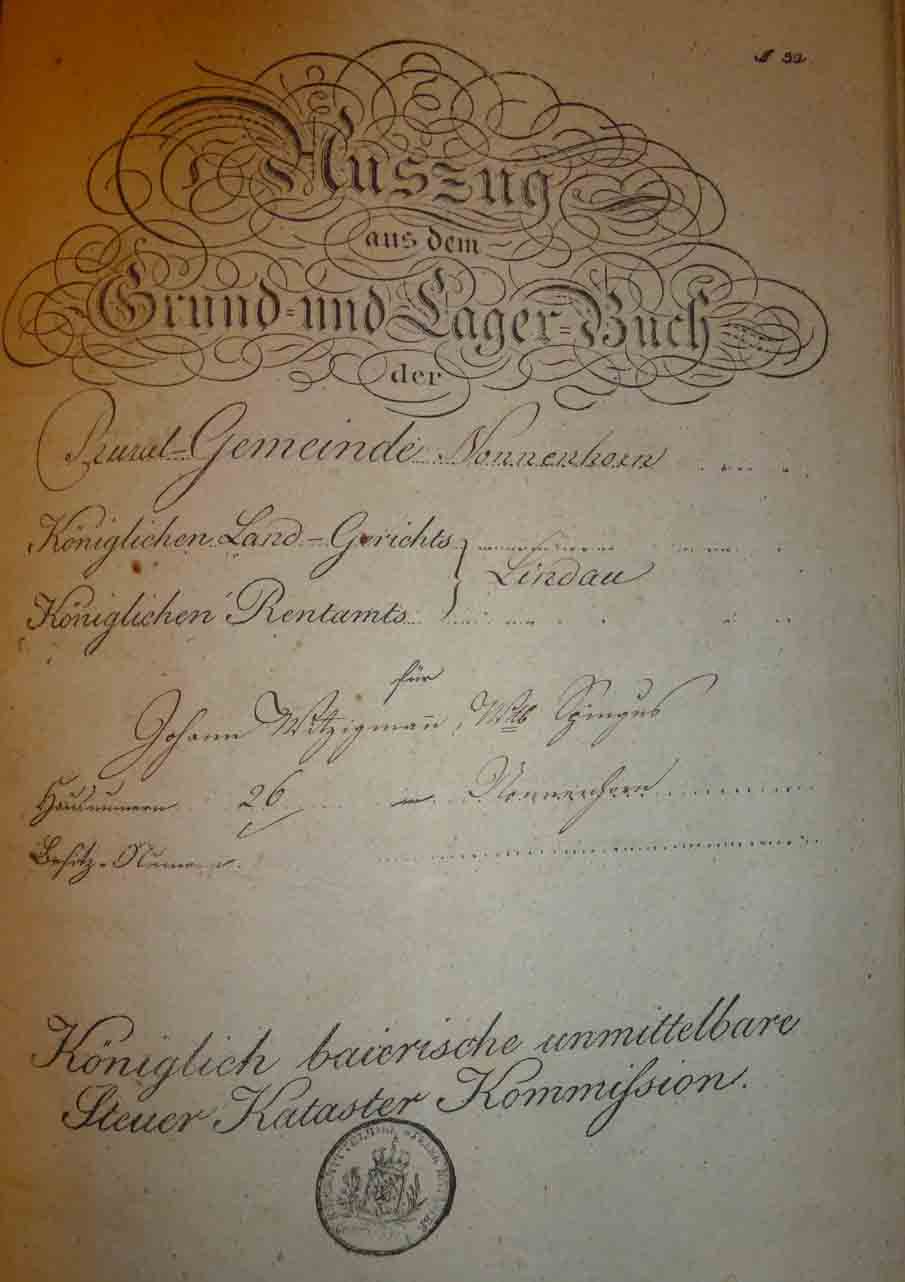 Auszug
aus dem
Grund=und Lager=Buch
der
Rural-Gemeinde Nonnenhorn
Königlichen Land-Gerichts
Lindau
Königlichen Rentamts
für
Johann Witzigmann
Hausnumern 26 in Nonnenhorn
Besitz-Numern
Königlich baierische unmittelbare
Steuer Kataster Kommißion.